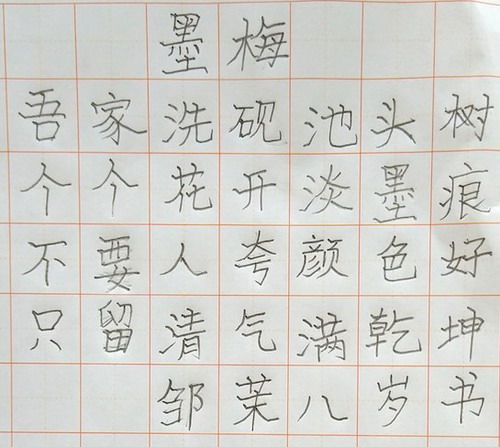 墨梅
吾家洗砚池头树
个个花开淡墨痕
不要人夸颜色好
只留清气满乾坤
邹茉八岁书